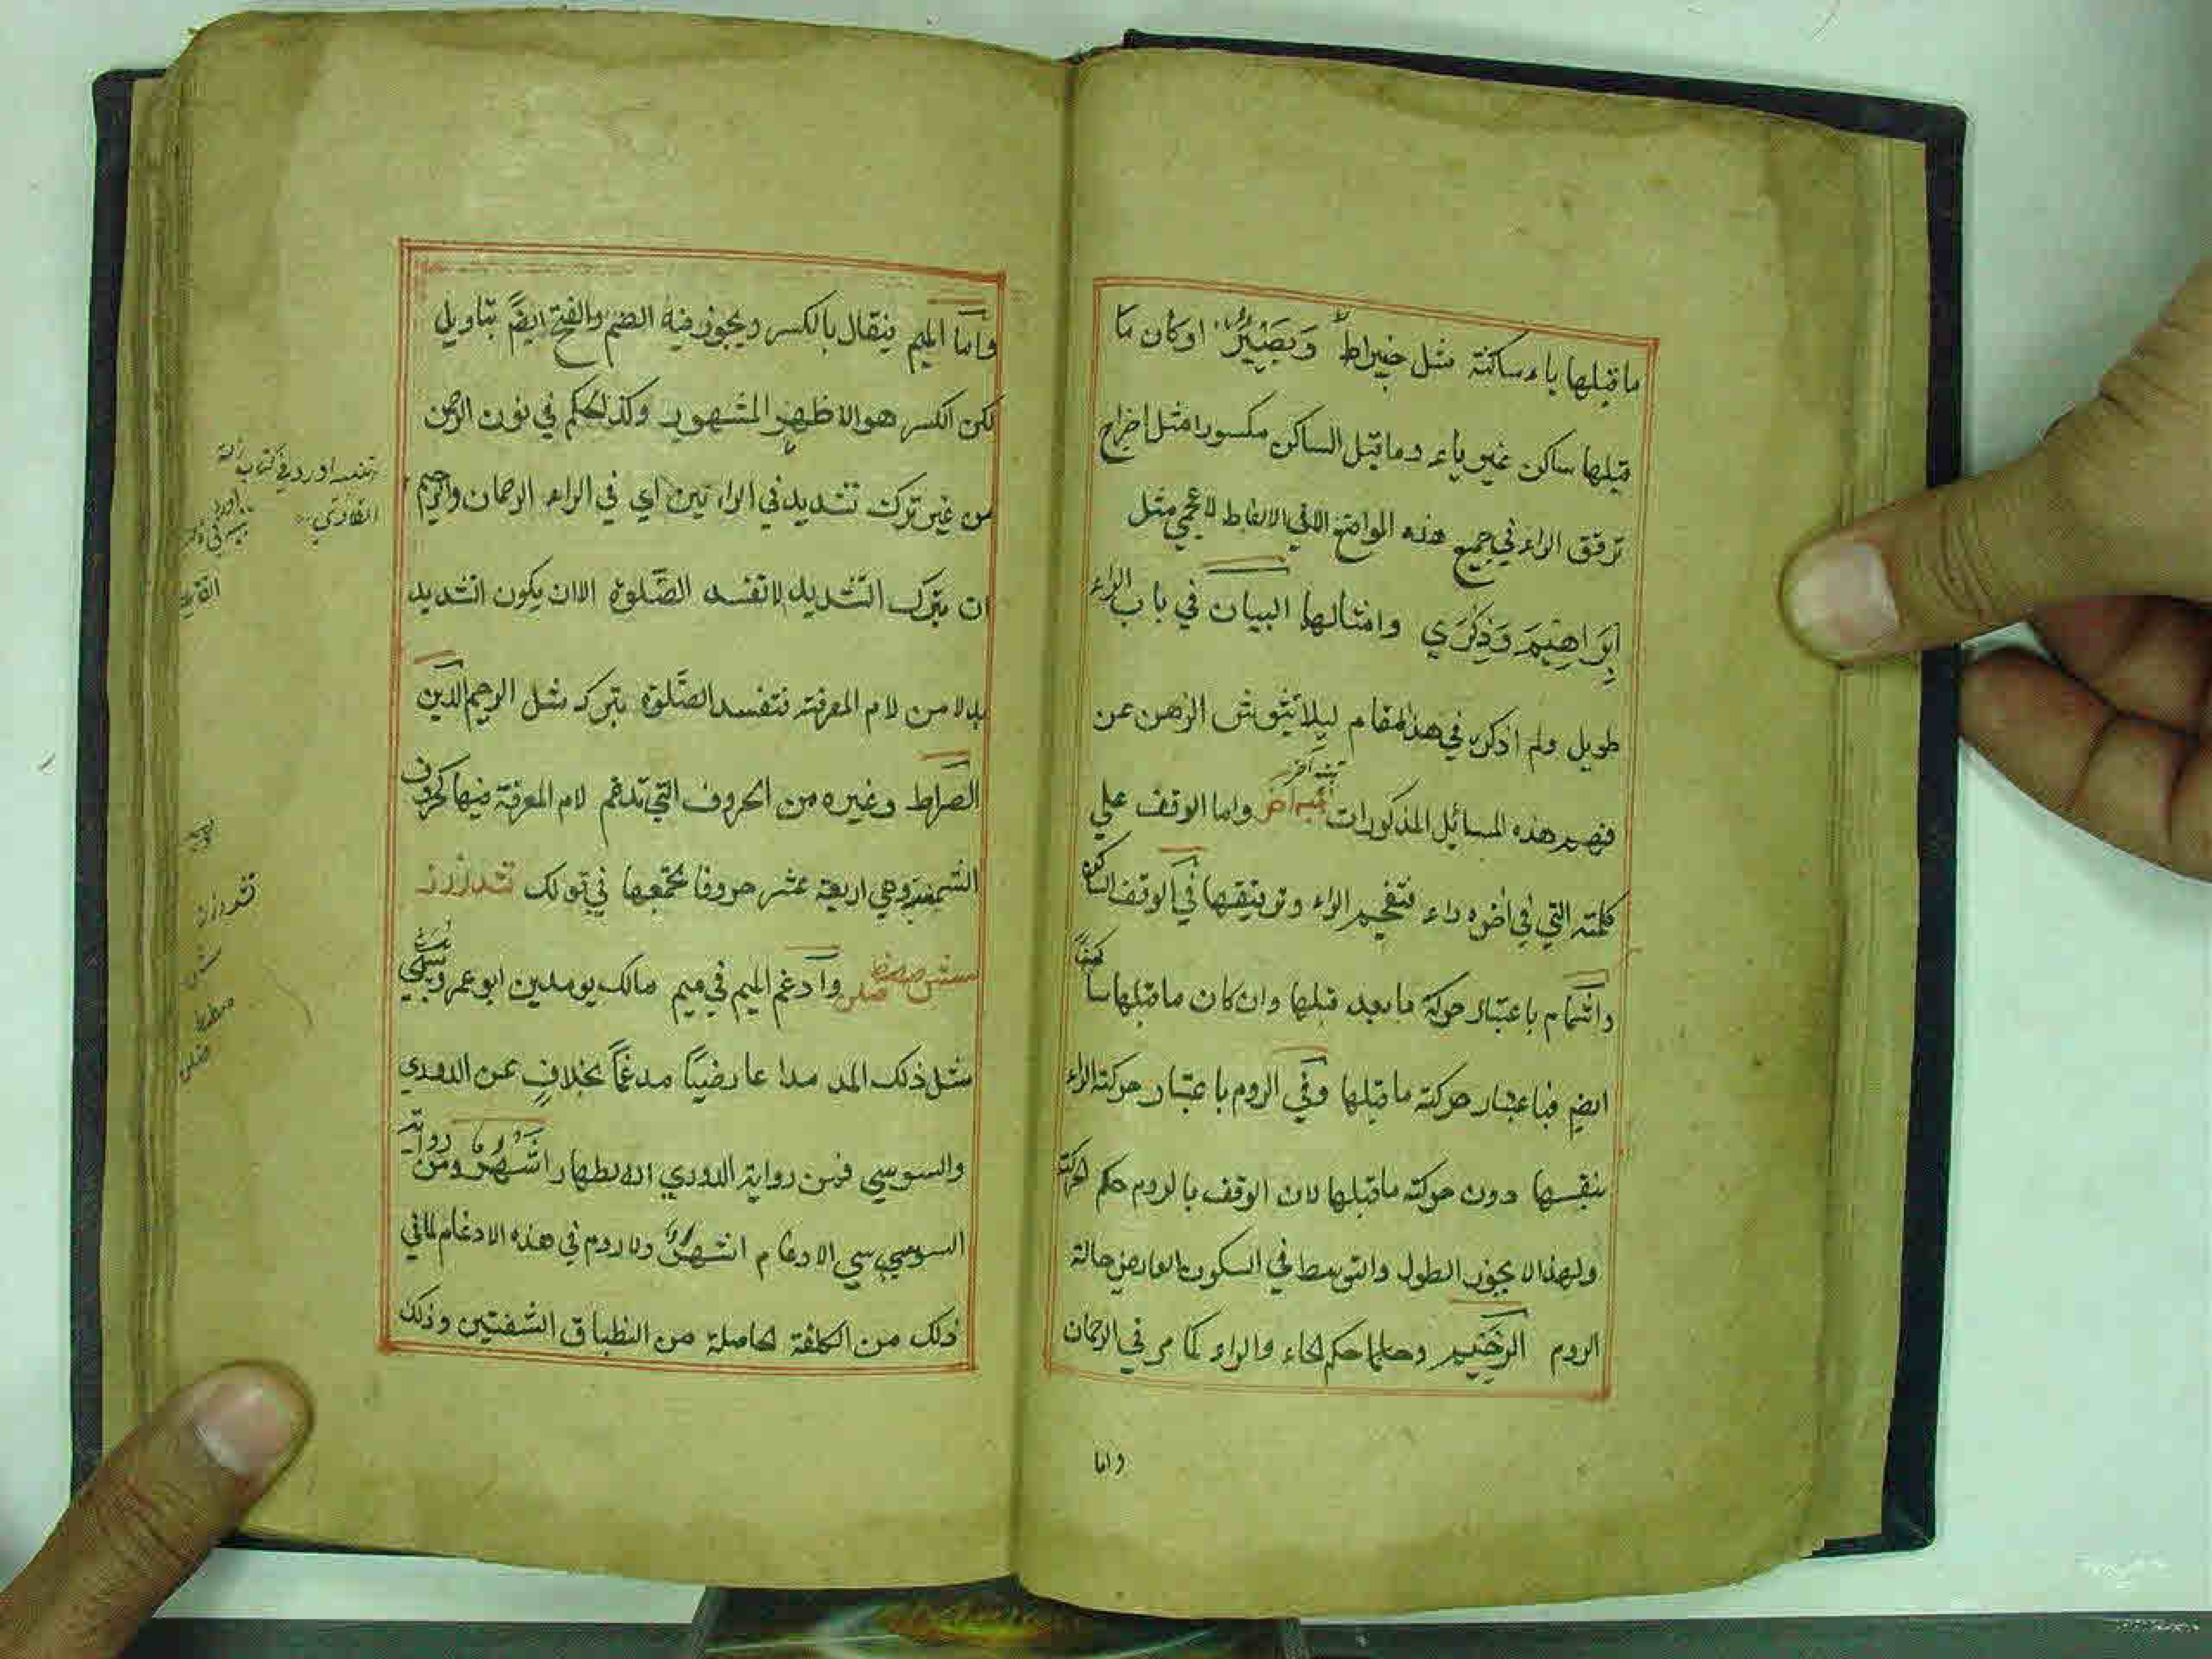 ما قبلها ياء ساكنة مثل خيراط وَبَصِيْرٌ او كان ما
قبلها ساكن غير ياء وما قبل الساكن مكسورا مثل اخراج
ترقق الراء في جميع هذه المواضع الا في الالفاظ لاعجمي مثل
اِبْرَاهِيْمَ وَذِكْرَي وامثالها البيان في باب الراء
طويل ولم اذكره في هذا مقام ليلا يتوش الزهن عن
فهم هذه المسائل المذكورات تنبيه آخر واما الوقف علي
كلمته التي في اخره راء فتفخيم الراء وترقيقها في الوقف الساكون
واشمام باعتبار حركة مابعد قبلها وان كان ماقبلها سا
ايضا فباعتبار حركته ماقبلها وفي الروم باعتبار حركته الراء
بنفسها دون حركته ماقبلها لان الوقف بالروم حكم الحركته
ولهذا لا يجوز الطول والتوسط في السكون العارض حالة
الروم الرَّحِيْم وحا حكم الحاء والراء كما مر في الرحمان
واما
واما الميم فيقال بالكسر ويجوز فيه الضم والفتح ايضً بتاويل
لكن الكسر هو الاظهر المشهور وكذا لحكم في نون الرحمن
من غير ترك تشديد في الرائين اي في الراء الرحمان والرحيم
ان يترك التشديد لاتفسد الصّلوة الا ان يكون التشديد
بدلا من لام المعرفته فتفسد الصَّلوة بتركه مثل الرحيم الدين
الصراط وغيره من الحروف التي تدغم لام المعرفة فيها كحروف
الشمسية وهي اربعة عشر حروفا تجتمعها في قولك تثدذرز
سشصضطظلن وادغم الميم في ميم مالك يومدين ابو عمرو
مثل ذلك المد مدا عارضيًا مدغمًا بخلافٍ عن الدوري
والسوسي فمن رواية الدوري الاظهار اشهر ومن رواية
السوسي الادغام اشهر ولا روم في هذه الادغام لما في
ذلك من الكلفة الحاصلة من انطباق الشفتين وذلك